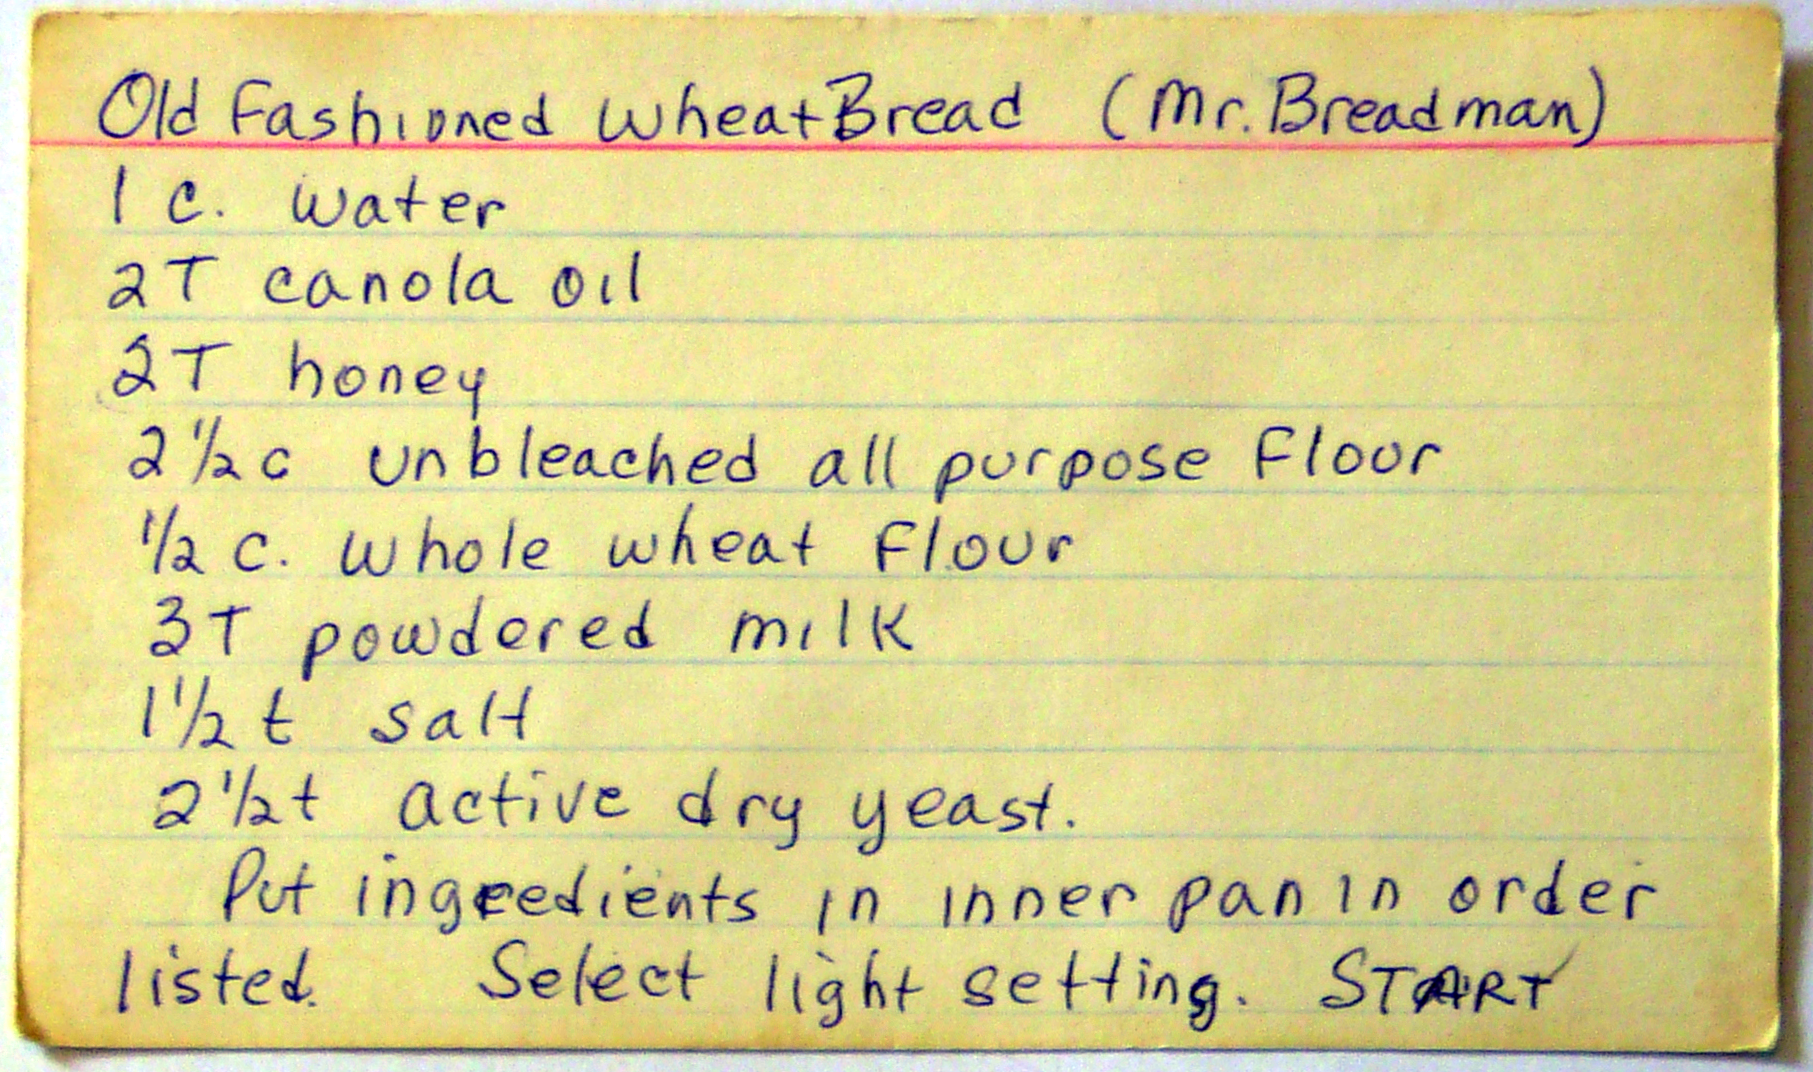 Old Fashioned Wheat Bread (Mr. Breadman)
1 c. water
2T canola oil
2T honey
2 1/2 c unbleached all purpose flour
1/2 c. whole wheat flour
3T powdered milk
1 1/2 t salt
2 1/2 t active dry yeast.
Put ingredients in inner pan in order
listed. Select light setting. START